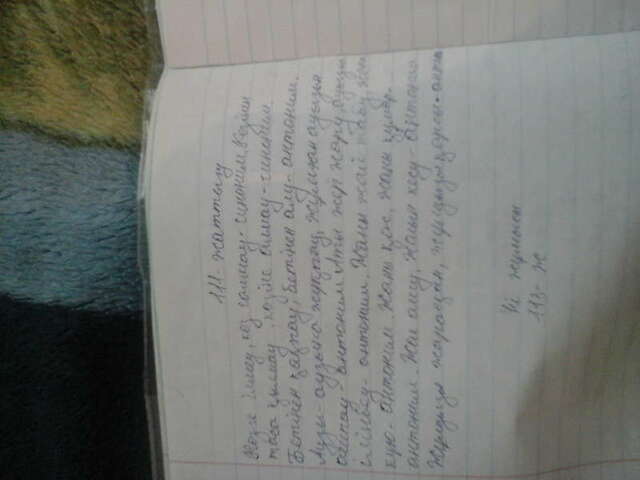 111- жаттығу
Көзге ілмеу, көз салмау - синоним. Көзінен
таса қылмау, көзіне ілмау - синоним.
Бетінен қақпау, бетінен алу - антоним.
Аузы - аузына жұқпау, жұмған аузын
ашпау - антоним. Аты жер жару, ауызға
ілінбеу - антоним. Жаны жай табу, жаны
күю - антоним. Жаны қас, жаны құмар -
антоним. Жол ашу, жолын кесу - антоним
Жұлдызы жарасқан, жұлдызы қарсы - антоним
Үй жұмысы
113- ж